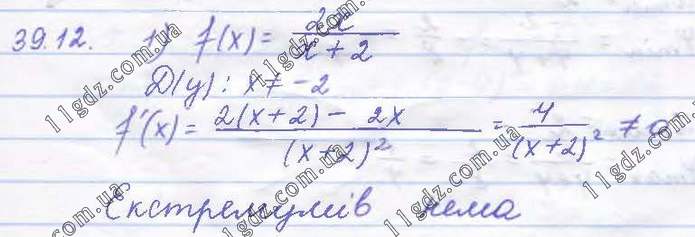 39.12. 1) f(x) = 2x / (x + 2)
D(y): x ≠ -2
f'(x) = (2(x+2) - 2x) / (x+2)² = 4 / (x+2)² ≠ 0
Екстремумів нема
11gdz.com.ua
11gdz.com.ua
11gdz.com.ua
11gdz.com.ua
11gdz.com.ua
11gdz.com.ua